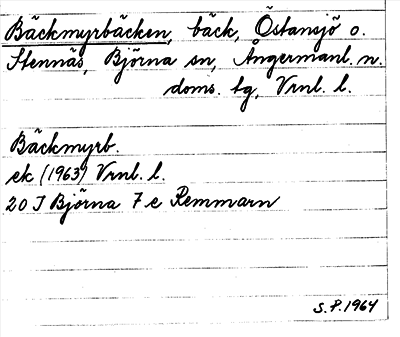 Bäckmyrbäcken, bäck, Östansjö o.
Stennäs, Björna sn, Ångermanl. n.
doms. tg, Vrnl. l.
Bäckmyrb.
ek (1963) Vrnl. l.
20 J Björna 7 e Remmarn
S.P. 1964